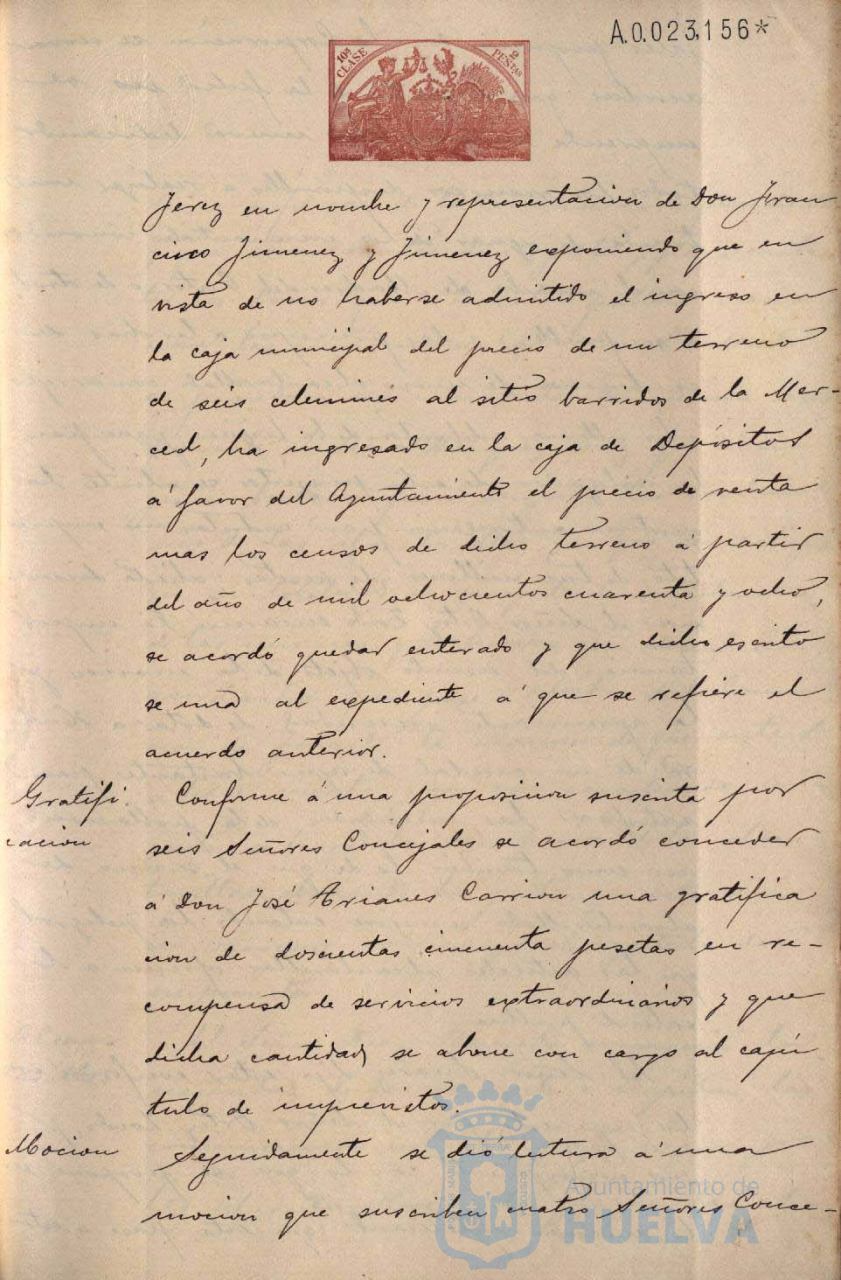 A.0.023,156*
10ª CLASE
2 PESETAS
Jerez en nombre y representacion de Don Fran
cisco Jimenez y Jimenez exponiendo que en
vista de no haberse admitido el ingreso en
la caja municipal del precio de un terreno
de seis celemines al sitio barridos de la Mer-
ced, ha ingresado en la caja de Depósitos
á favor del Ayuntamiento el precio de venta
mas los censos de dicho terreno á partir
del año de mil ochocientos cuarenta y ocho,
se acordó quedar enterado y que dicho escrito
se una al expediente á que se refiere el
acuerdo anterior.
Gratifi
cacion
Conforme á una proposicion suscrita por
seis Señores Concejales se acordó conceder
á Don José Trianes Carrion una gratifica
cion de doscientas cincuenta pesetas en re-
compensa de servicios extraordinarios y que
dicha cantidad se abone con cargo al capí
tulo de imprevistos.
Mocion
Seguidamente se dió lectura á una
mocion que suscriben cuatro Señores Conce-
Ayuntamiento de
HUELVA